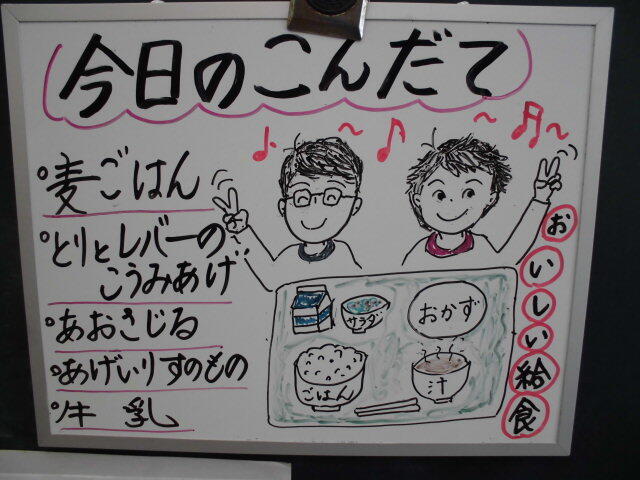 今日のこんだて
麦ごはん
とりとレバーの
こうみあげ
あおさじる
あげいりすのもの
牛乳
サラダ
おかず
ごはん
汁
おいしい給食